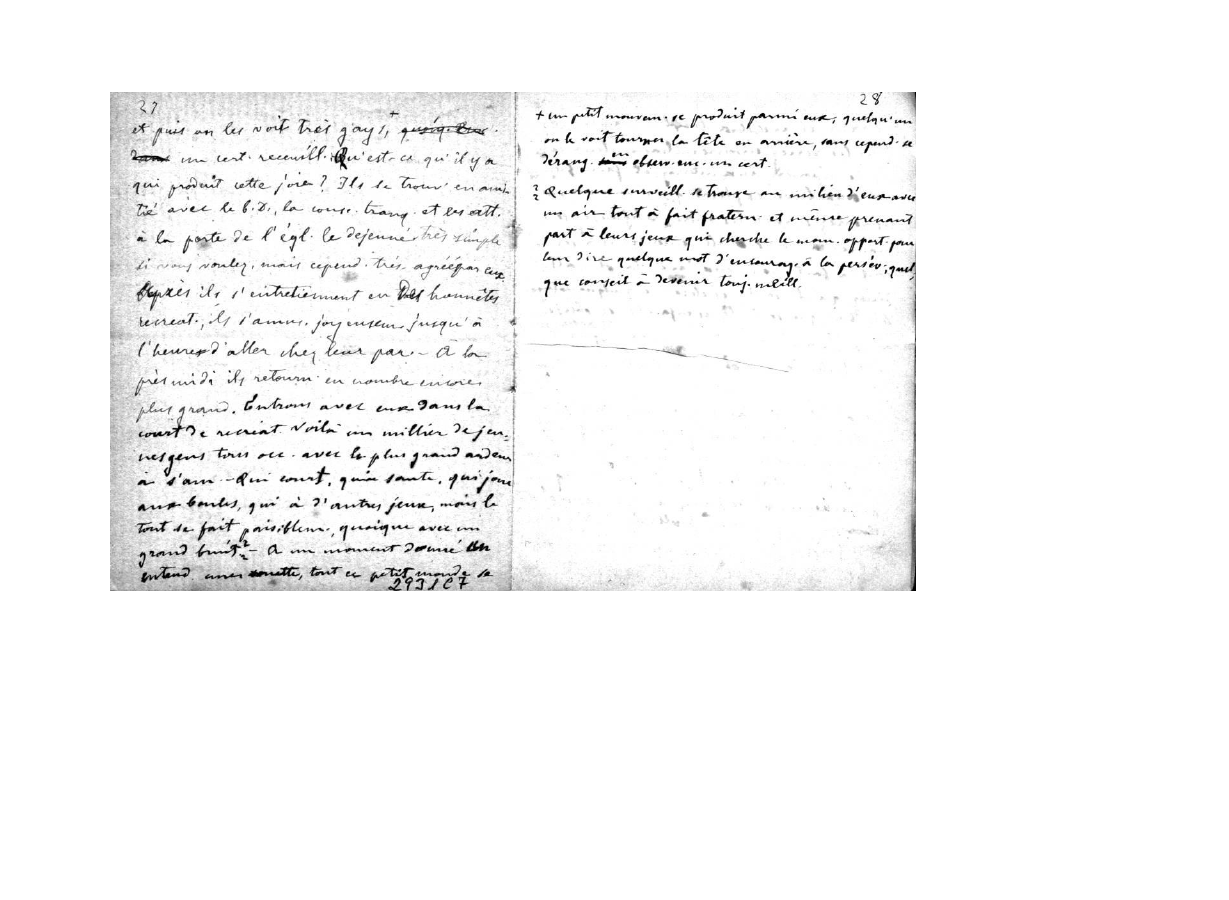 27
et puis on les voit très gays, +
un cert. receuill. Qu'est-ce qu'il y a
qui produit cette joie? Ils se trouv. en ami-
tié avec le b. D., la consc. tranq. et les att.
à la porte de l'égl. le dejenné très simple
si vous voulez, mais cepend. très agréé par eux
Après ils s'entretiennent en des honnêtes
recreat., ils s'amus. joyeusem. jusqu'à
l'heure d'aller chez leur par. – A la
près midi ils retourn. en nombre encore
plus grand. Entrons avec eux dans la
court de recréat. Voilà un millier de jeu-
nes gens tous occ. avec la plus grand ardeur
à s'am. – Qui court, qui saute, qui joue
aux boules, qui à d'autres jeux, mais le
tout se fait paisiblem., quoique avec un
grand bruit 2/2 – A un moment donné
entend une sonette, tout ce petit monde se
2931C7
28
+ un petit mouvem. se produit parmi eux, quelqu'un
on le voit tourner la tête en arrière, sans cepend. se
dérang. en observ. enc. un cert.
2/2 Quelque surveill. se trouve au milieu d'eux avec
un air tout à fait fratern. et même prenant
part à leurs jeux qui cherche le mom. opport. pour
leur dire quelque mot d'encourag. à la persév., quel-
que conseil à devenir touj. meill.